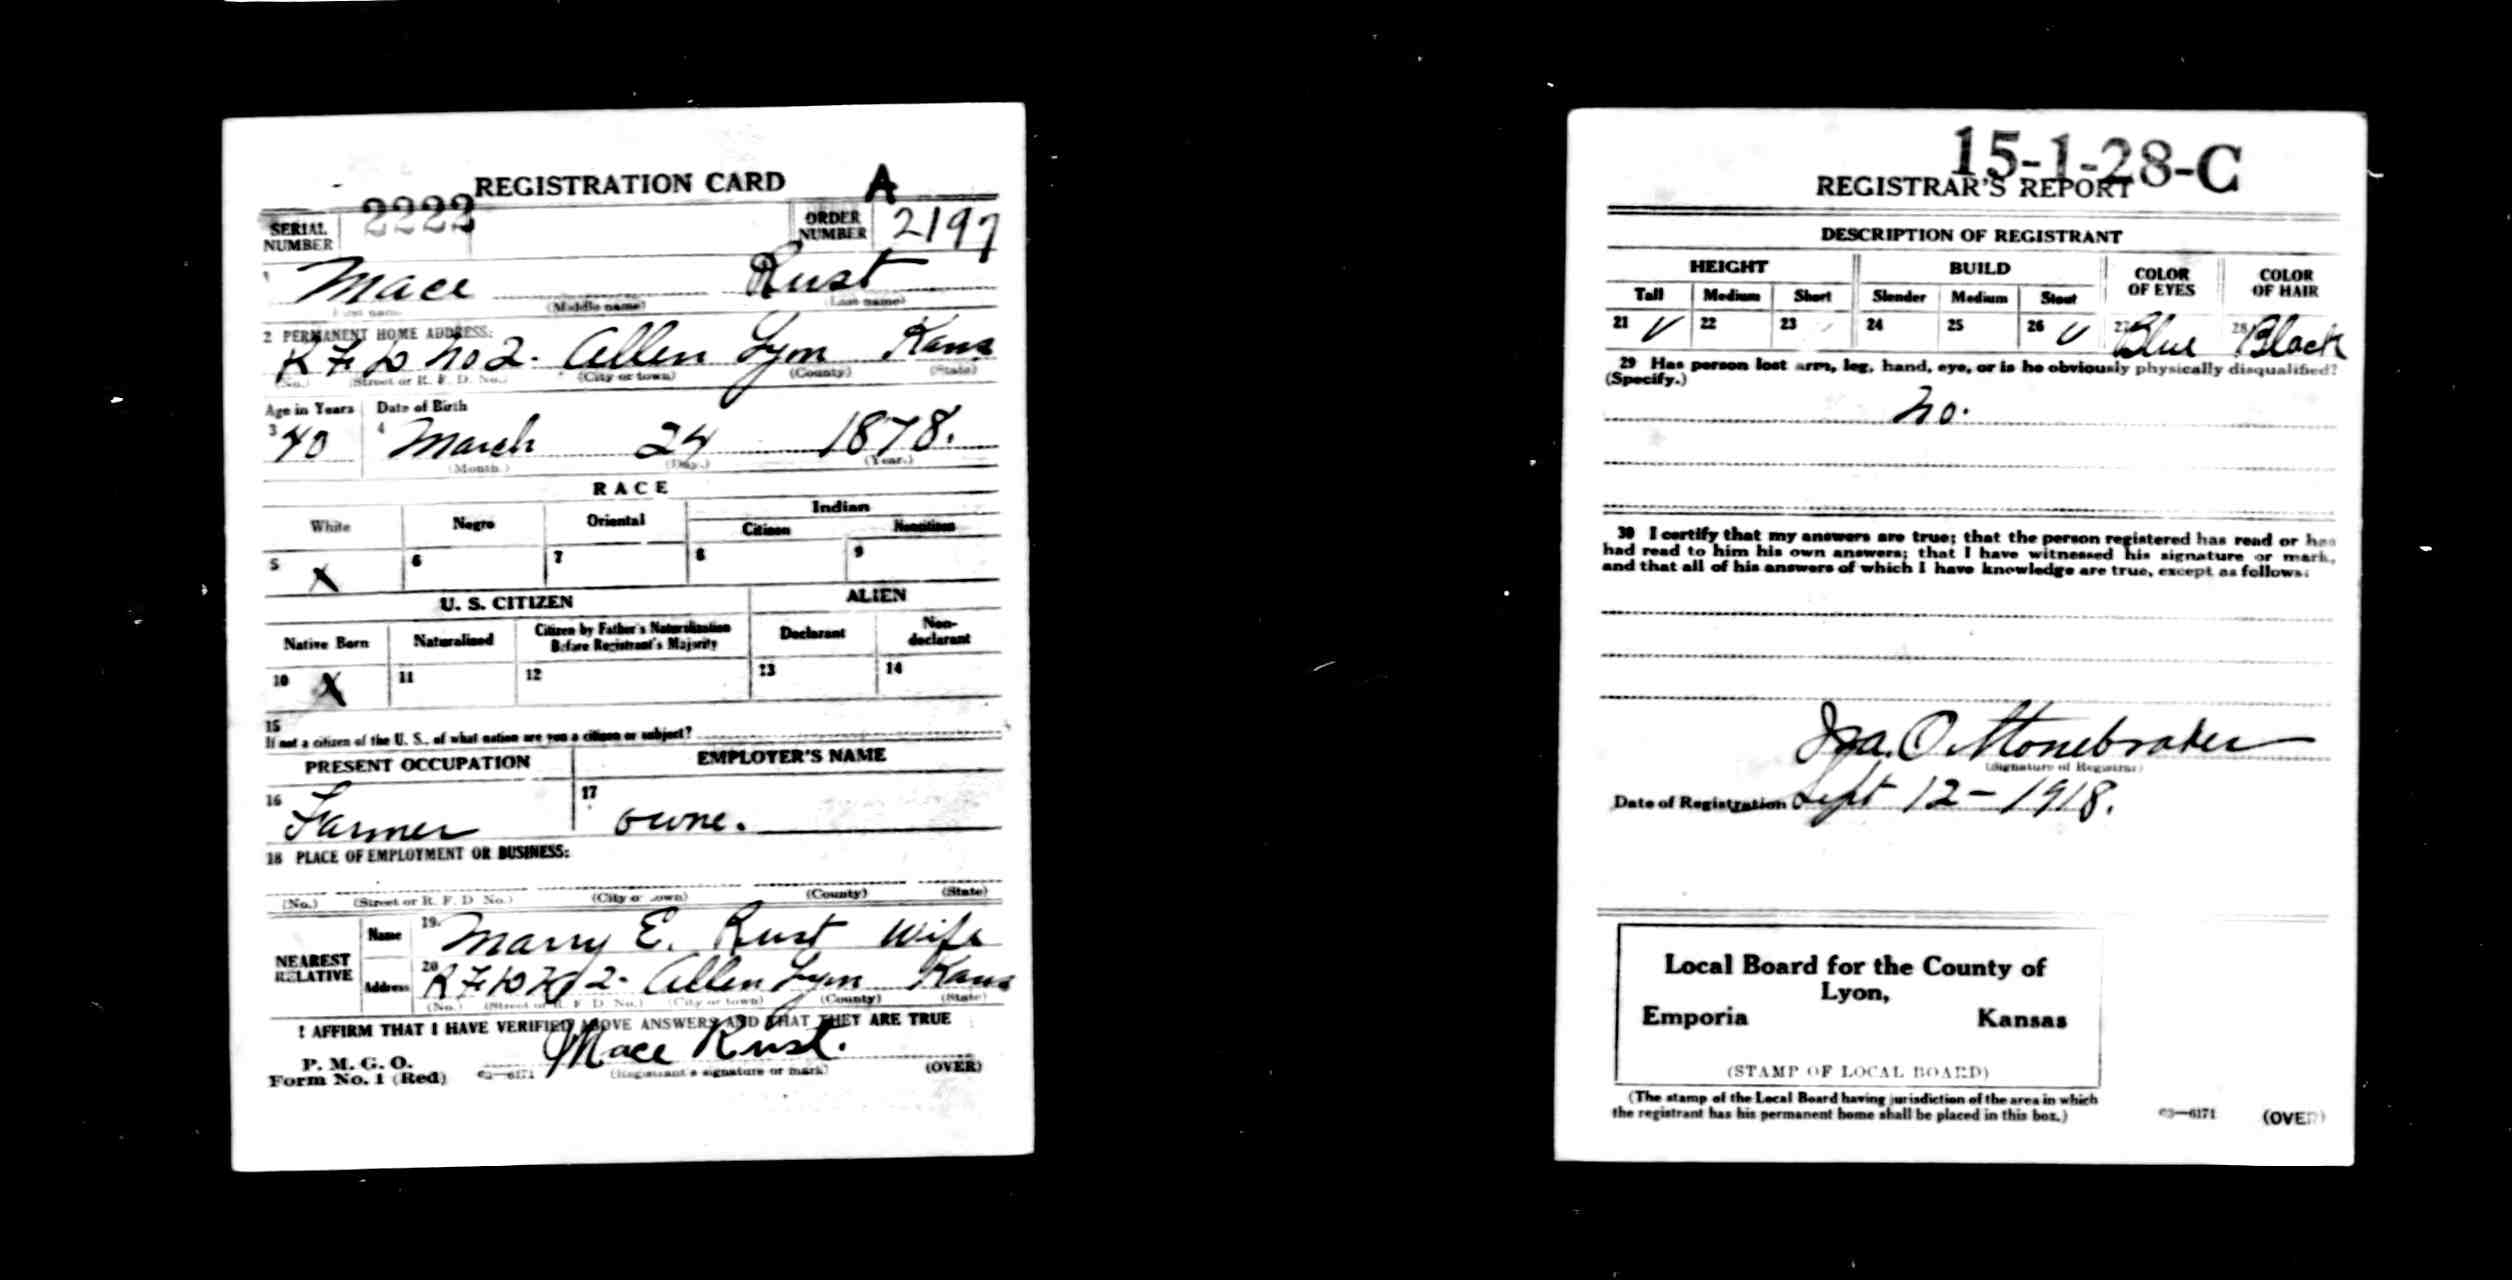 REGISTRATION CARD A
SERIAL NUMBER 2222 ORDER NUMBER 2197
1 Mace Rust
(First name) (Middle name) (Last name)
2 PERMANENT HOME ADDRESS:
R F D No 2. Allen Lyon Kans
(No.) (Street or R. F. D. No.) (City or town) (County) (State)
Age in Years Date of Birth
3 40 4 March 24 1878.
(Month.) (Day.) (Year.)
RACE
White Negro Oriental Indian
Citizen Noncitizen
5 X 6 7 8 9
U. S. CITIZEN ALIEN
Native Born Naturalized Citizen by Father's Naturalization Before Registrant's Majority Declarant Non-declarant
10 X 11 12 13 14
15
If not a citizen of the U. S., of what nation are you a citizen or subject?
PRESENT OCCUPATION EMPLOYER'S NAME
16 Farmer 17 owne.
18 PLACE OF EMPLOYMENT OR BUSINESS:
(No.) (Street or R. F. D No.) (City or town) (County) (State)
NEAREST RELATIVE
Name 19 Marry E. Rust Wife
Address 20 R F D No 2. Allen Lyon Kans
(No.) (Street or R. F D. No.) (City or town) (County) (State)
I AFFIRM THAT I HAVE VERIFIED ABOVE ANSWERS AND THAT THEY ARE TRUE
P. M. G. O.
Form No. 1 (Red) Mace Rust.
(Registrant's signature or mark) (OVER)
15-1-28-C
REGISTRAR'S REPORT
DESCRIPTION OF REGISTRANT
HEIGHT BUILD COLOR OF EYES COLOR OF HAIR
Tall Medium Short Slender Medium Stout
21 ✓ 22 23 24 25 26 ✓ 27 Blue 28 Black
29 Has person lost arm, leg, hand, eye, or is he obviously physically disqualified?
(Specify.)
No.
30 I certify that my answers are true; that the person registered has read or has
had read to him his own answers; that I have witnessed his signature or mark,
and that all of his answers of which I have knowledge are true, except as follows:
Ira. O. Stonebraker
(Signature of Registrar)
Date of Registration Sept 12 - 1918.
Local Board for the County of
Lyon,
Emporia Kansas
(STAMP OF LOCAL BOARD)
(The stamp of the Local Board having jurisdiction of the area in which
the registrant has his permanent home shall be placed in this box.)
03—6171 (OVER)